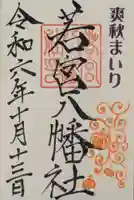 爽秋まいり
若宮八幡社
令和六年十月十三日